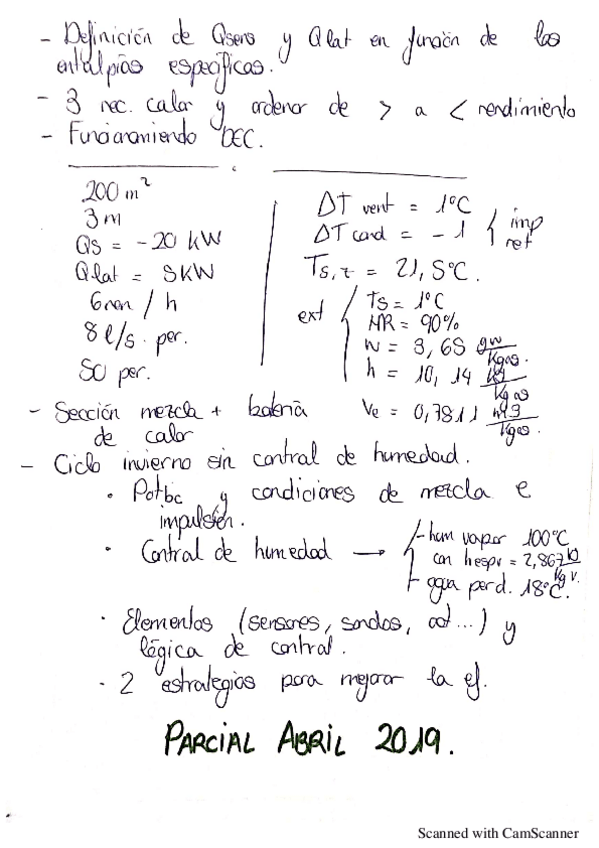 - Definición de Qsens y Qlat en función de las
entalpías específicas.
- 3 rec. calor y ordenar de > a < rendimiento
- Funcionamiento DEC.
200 m²
3 m
Qs = -20 kW
Qlat = 5KW
6 ren / h
8 l/s. per.
50 per.
ΔT vent = 1°C
ΔT cond = - 1
imp
ret
Ts,z = 21,5°C.
ext
Ts = 1°C
HR = 90%
w = 3,65 gw/Kgas.
h = 10,14 kJ/Kgas
Ve = 0,7811 m3/Kgas.
- Sección mezcla + batería
de calor
- Ciclo invierno sin control de humedad.
• Potbc y condiciones de mezcla e
impulsión.
• Control de humedad → - hum vapor 100°C
con hespv = 2,867 kJ/Kg v.
+ agua perd. 18°C.
• Elementos (sensores, sondas, act...) y
lógica de control.
• 2 estrategias para mejorar la ef.
PARCIAL ABRIL 2019.
Scanned with CamScanner